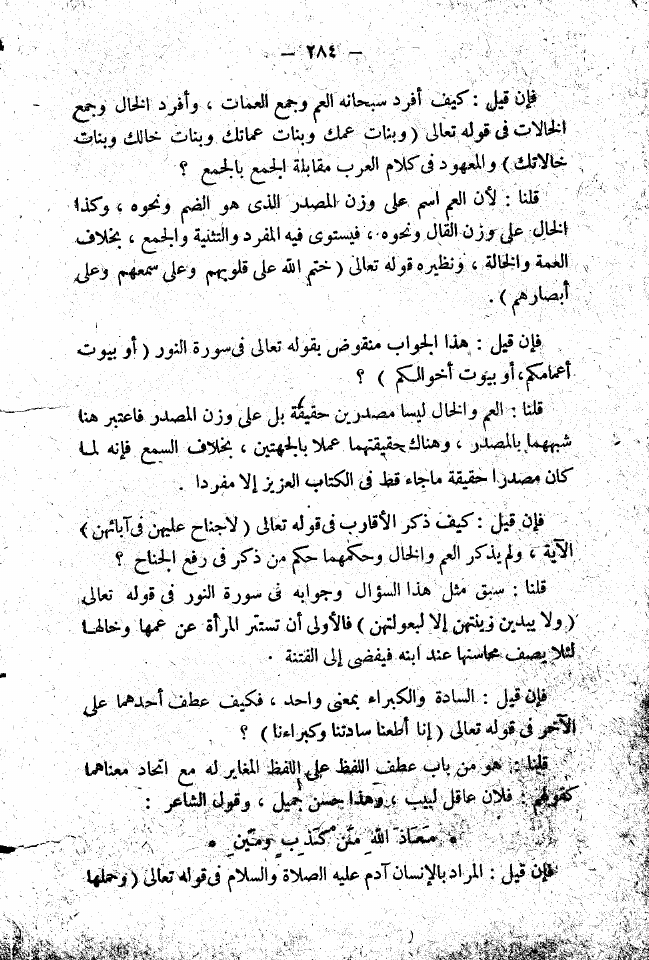 — ٢٨٤ —
فإن قيل : كيف أفرد سبحانه العم وجمع العمات ، وأفرد الخال وجمع
الخالات فى قوله تعالى ( وبنات عمك وبنات عماتك وبنات خالك وبنات
خالاتك ) والمعهود فى كلام العرب مقابلة الجمع بالجمع ؟
قلنا : لأن العم اسم على وزن المصدر الذى هو الضم ونحوه ، وكذا
الخال على وزن القال ونحوه ، فيستوى فيه المفرد والتثنية والجمع ، بخلاف
العمة والخالة ، ونظيره قوله تعالى ( ختم الله على قلوبهم وعلى سمعهم وعلى
أبصارهم ) .
فإن قيل : هذا الجواب منقوض بقوله تعالى فى سورة النور ( أو بيوت
أعمامكم، أو بيوت أخوالكم ) ؟
قلنا : العم والخال ليسا مصدرين حقيقة بل على وزن المصدر فاعتبر هنا
شبههما بالمصدر ، وهناك حقيقتهما عملا بالجهتين ، بخلاف السمع فإنه لما
كان مصدرا حقيقة ماجاء قط فى الكتاب العزيز إلا مفردا .
فإن قيل : كيف ذكر الأقارب فى قوله تعالى ( لاجناح عليهن فى آبائهن )
الآية ، ولم يذكر العم والخال وحكمهما حكم من ذكر فى رفع الجناح ؟
قلنا : سبق مثل هذا السؤال وجوابه فى سورة النور فى قوله تعالى
( ولا يبدين زينتهن إلا لبعولتهن ) فالأولى أن تستتر المرأة عن عمها وخالها
لئلا يصف محاسنها عند ابنه فيفضى إلى الفتنة .
فإن قيل : السادة والكبراء بمعنى واحد ، فكيف عطف أحدهما على
الآخر فى قوله تعالى ( إنا أطعنا سادتنا وكبراءنا ) ؟
قلنا : هو من باب عطف اللفظ على اللفظ المغاير له مع اتحاد معناهما
كقولهم : فلان عاقل لبيب ، وهذا حسن جميل ، وقول الشاعر :
* معاذ الله من كذب ومين *
فإن قيل : المراد بالإنسان آدم عليه الصلاة والسلام فى قوله تعالى ( وحملها